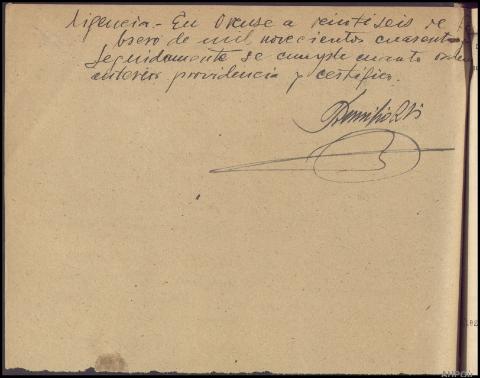 ligencia.- En Orense a veintiseis de
brero de mil novecientos cuarenta
Seguidamente se cumple cuanto orden
anterior providencia y certifico.